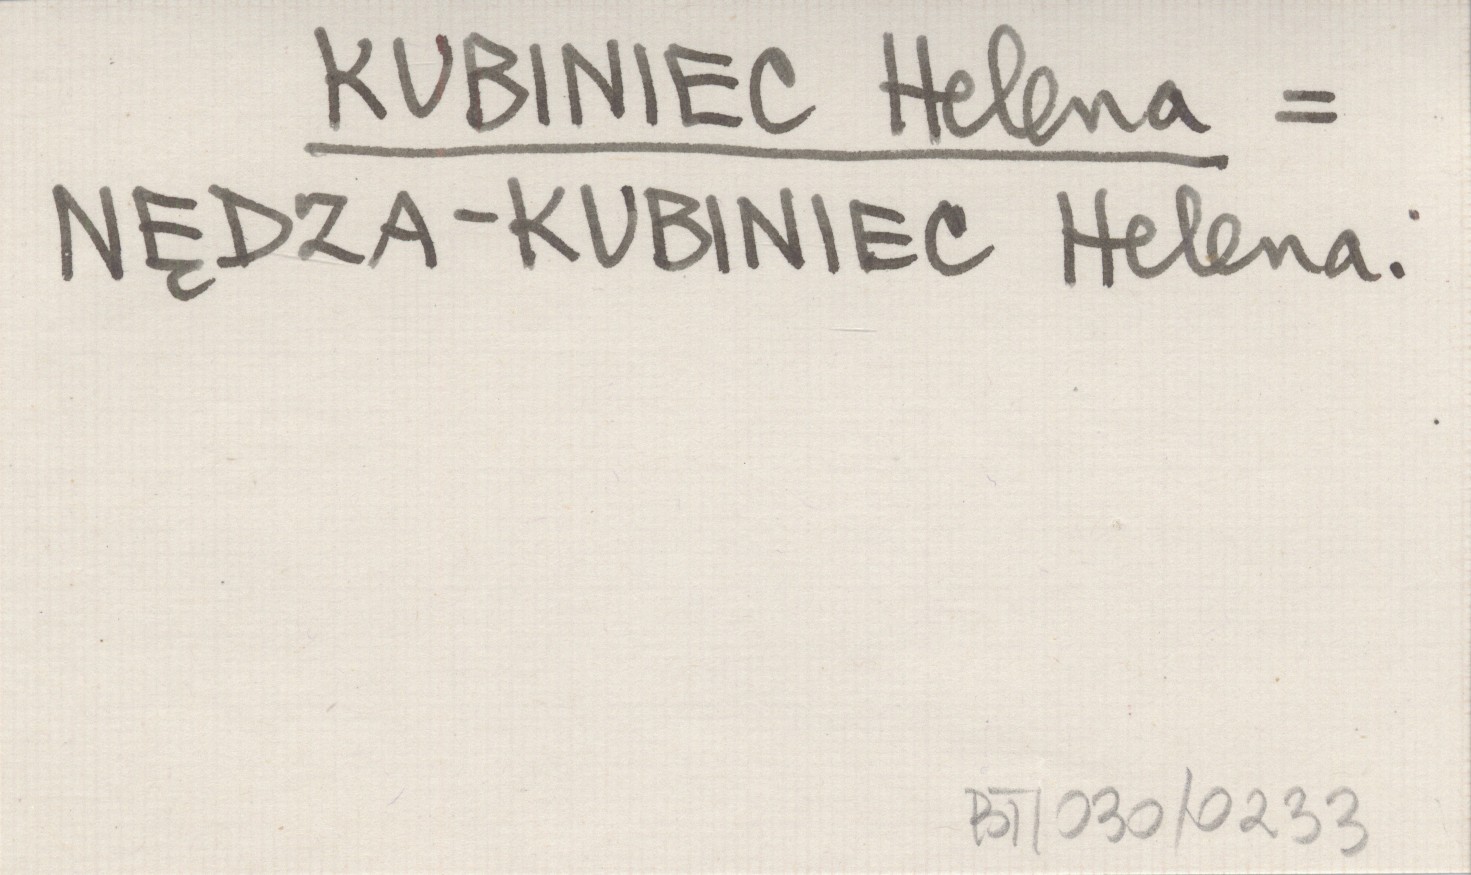 KUBINIEC Helena =
NĘDZA-KUBINIEC Helena.
BT/030/0233